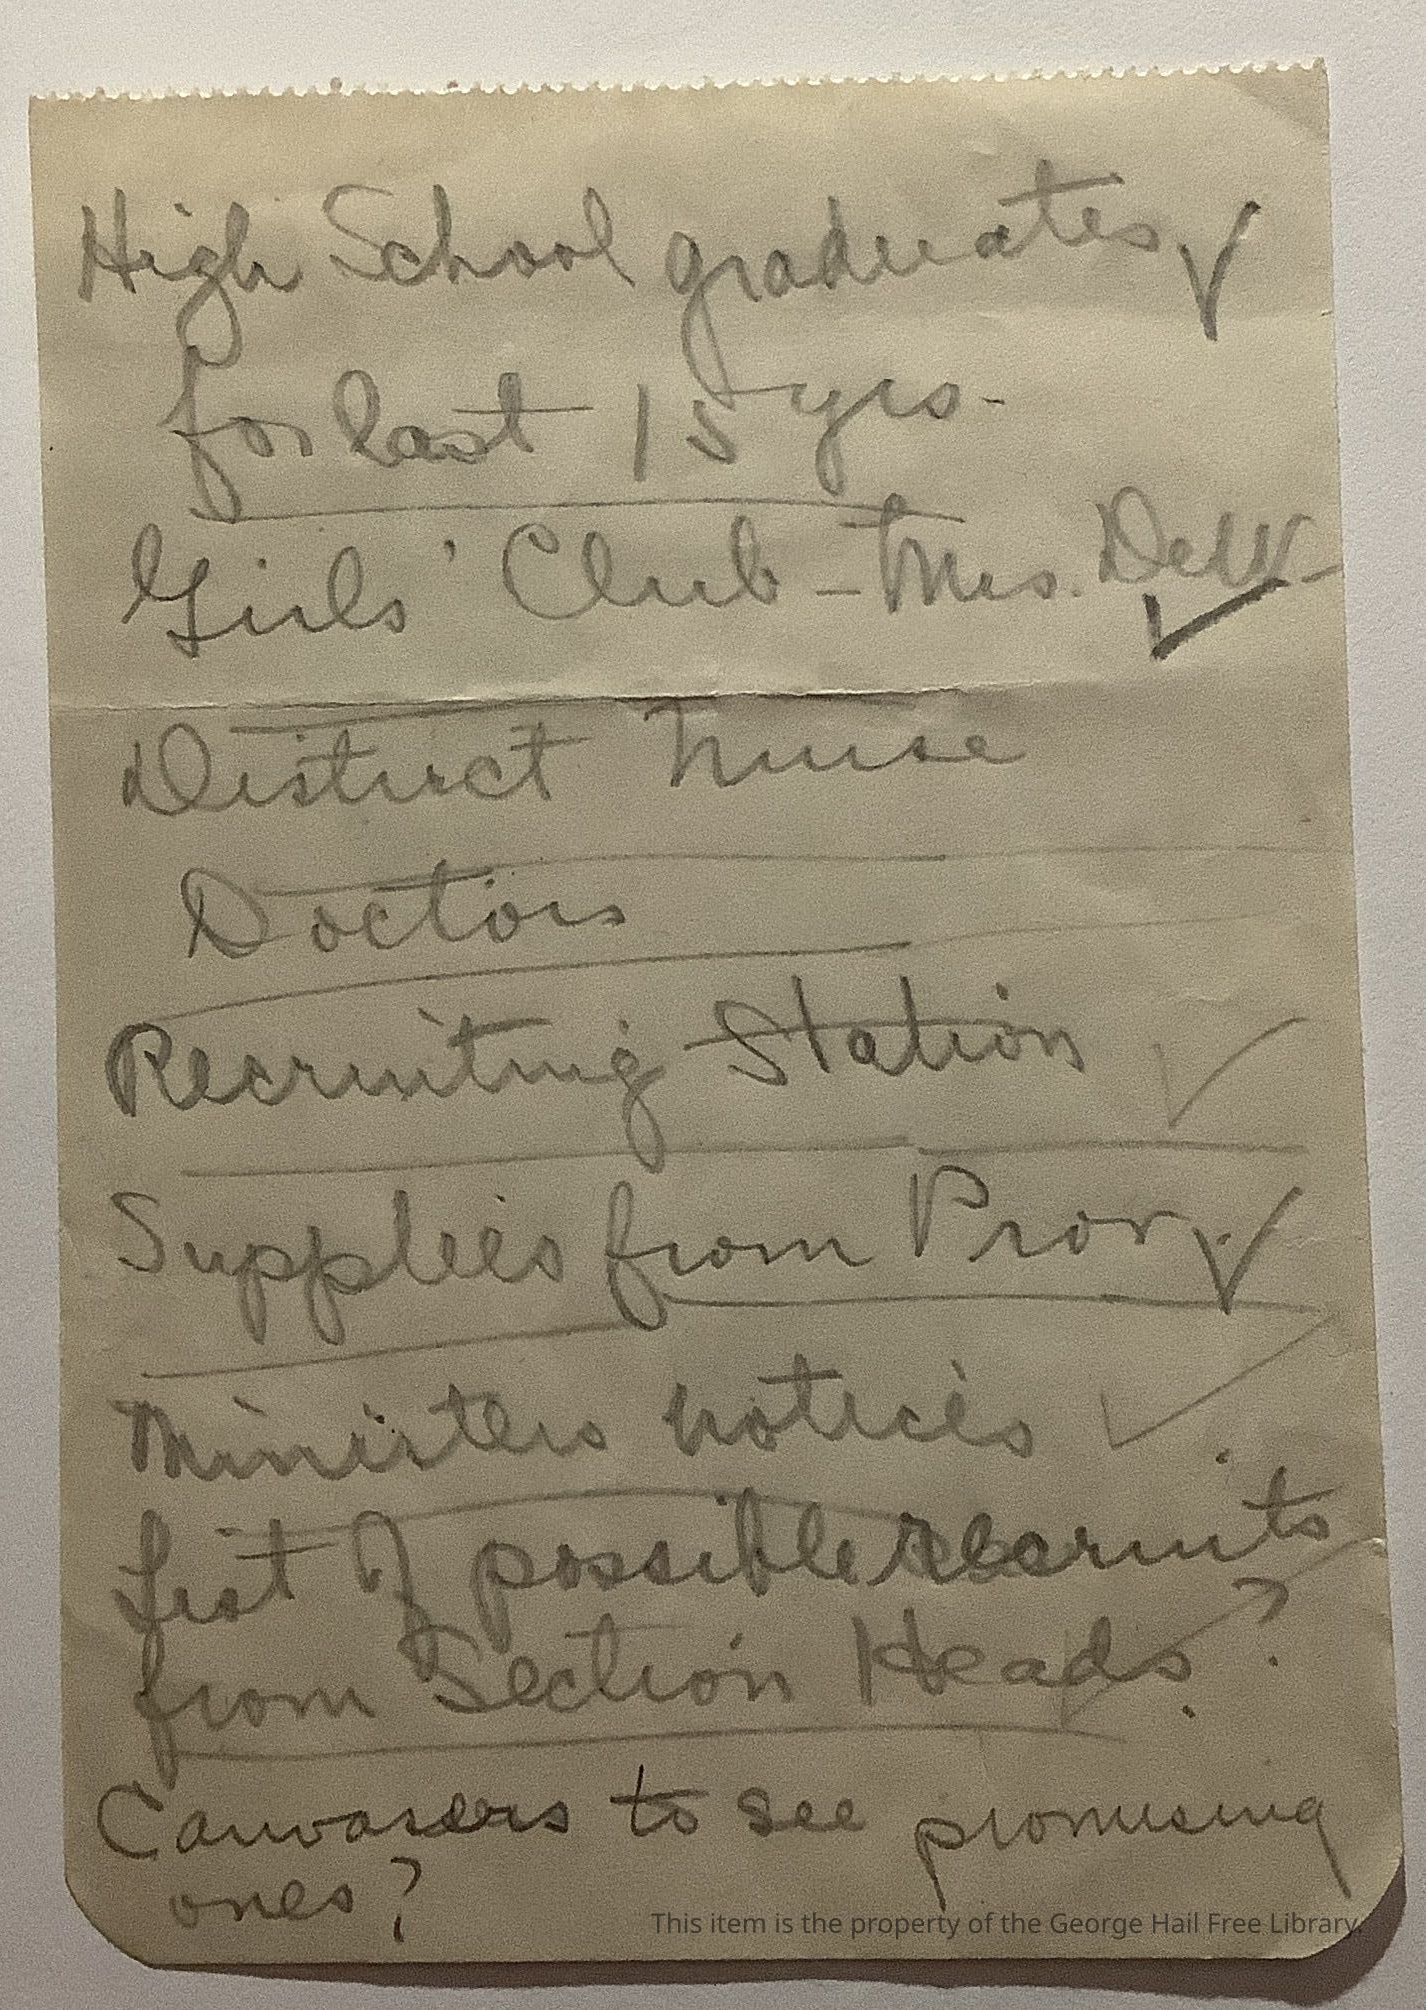 High School graduates ✓
for last 15 yrs.
Girls' Club - Mrs. DeW ✓
District nurse
Doctors
Recruiting Station ✓
Supplies from Prov. ✓
Ministers notices ✓
List of possible recruits
from Section Heads?
Canvasers to see promising
ones?
This item is the property of the George Hail Free Library.